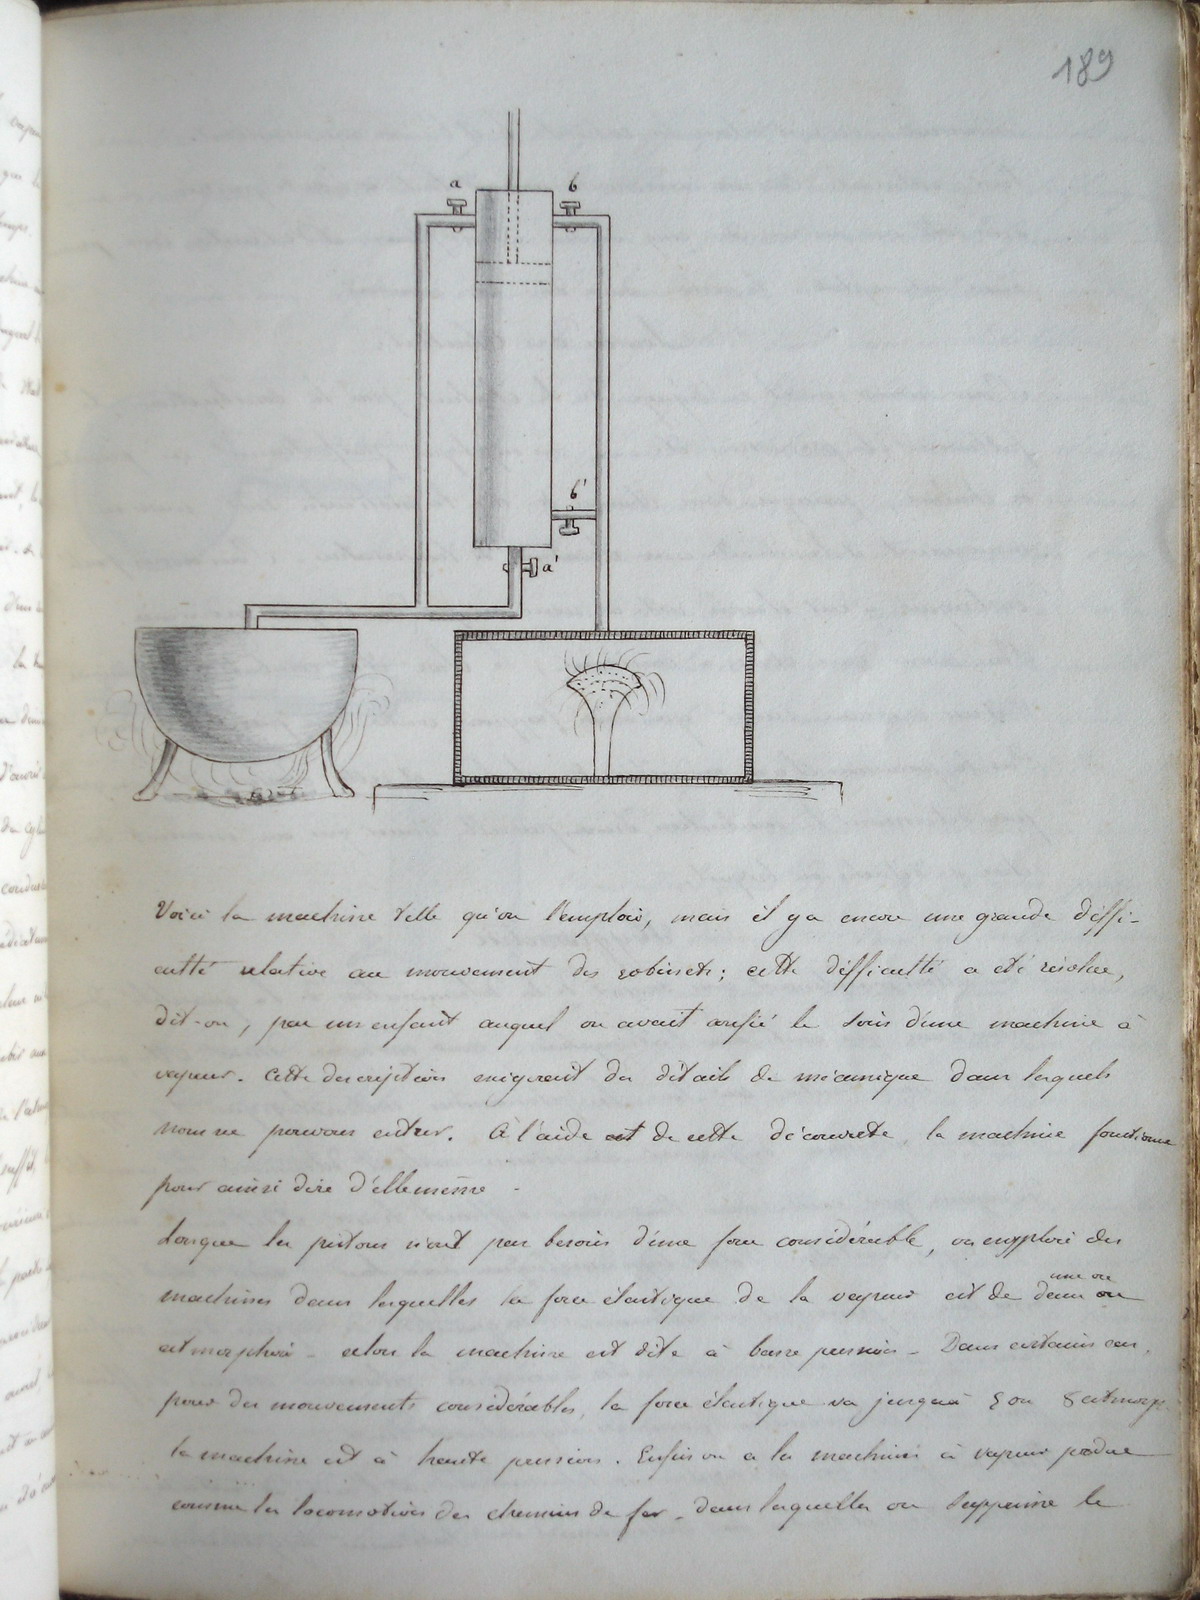 189
a
b
b'
a'
Voici la machine telle qu'on l'emploie, mais il y a encore une grande diffi-
culté relative au mouvement des robinets; cette difficulté a été résolue,
dit-on, par un enfant auquel on avait confié le soin d'une machine à
vapeur. Cette description exigerait des détails de mécanique dans lesquels
nous ne pouvons entrer. À l'aide de cette découverte, la machine fonctionne
pour ainsi dire d'elle même.
Lorsque les pistons n'ont pas besoin d'une force considérable, on emploie des
une ou
machines dans lesquelles la force élastique de la vapeur est de deux
atmosphè - alors la machine est dite à basse pression - Dans certains cas,
pour des mouvements considérables, la force élastique va jusqu'à 5 ou 8 atmosp.
la machine est à haute pression. Enfin on a les machines à vapeur perdue
comme les locomotives des chemins de fer, dans lesquelles on supprime le